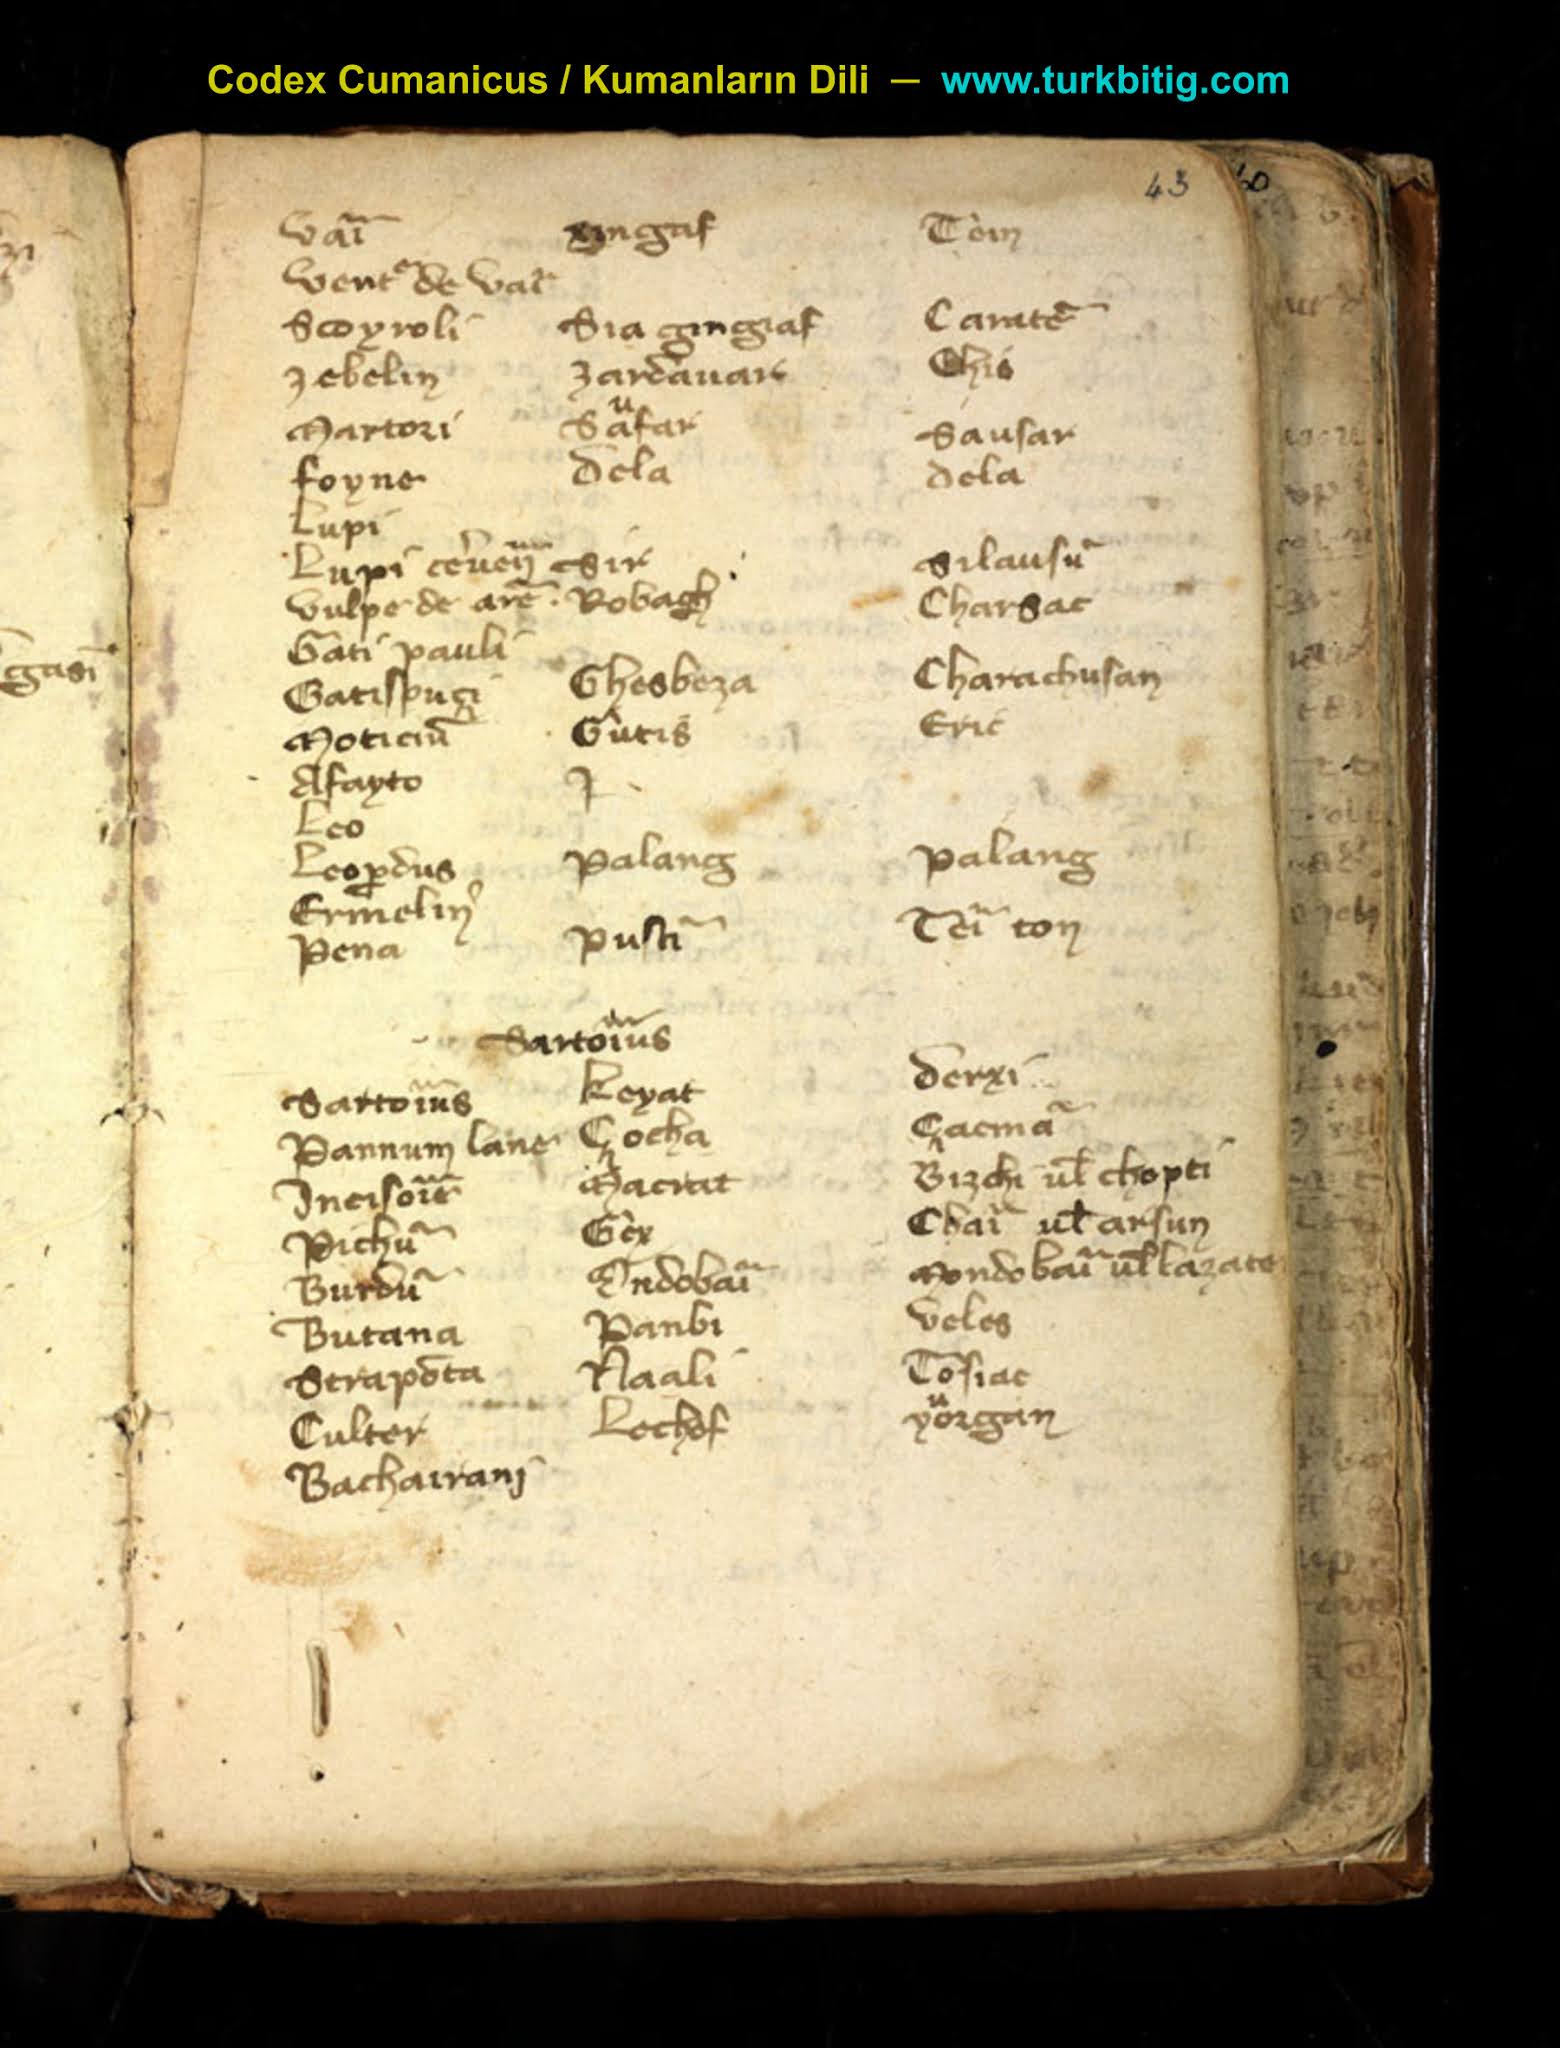 Codex Cumanicus / Kumanların Dili — www.turkbitig.com
43
vaī gingaf Toin
venter de vaī
Scoyroli Sia gingiaf Caratē
zebelin zardauar Chis
Martori Saufar Sausar
foyne Dela dela
Lupi
Lupi Sir Silausū
vulpe de arē Robagh Charsac
Gati pauli
Gatispuci Ghesbeza Charachusan
Moticiū Gutis Eric
Afayto I
Leo
Leopdus Palang palang
Ermelin
Pena pustī Teī ton
Sartoīus
Sartoīus keyat derxi
Pannum lane Çocha Cacmā
Incisoīe Macrat Bizchi ul chopti
Pichū Gex Chaī ul arsun
Burdū Ondobaī Mondobaī ul lazate
Butana Panbi veles
Strapōta Naali Tosiac
Culter Lechef yorgan
Bachairanj
gasi